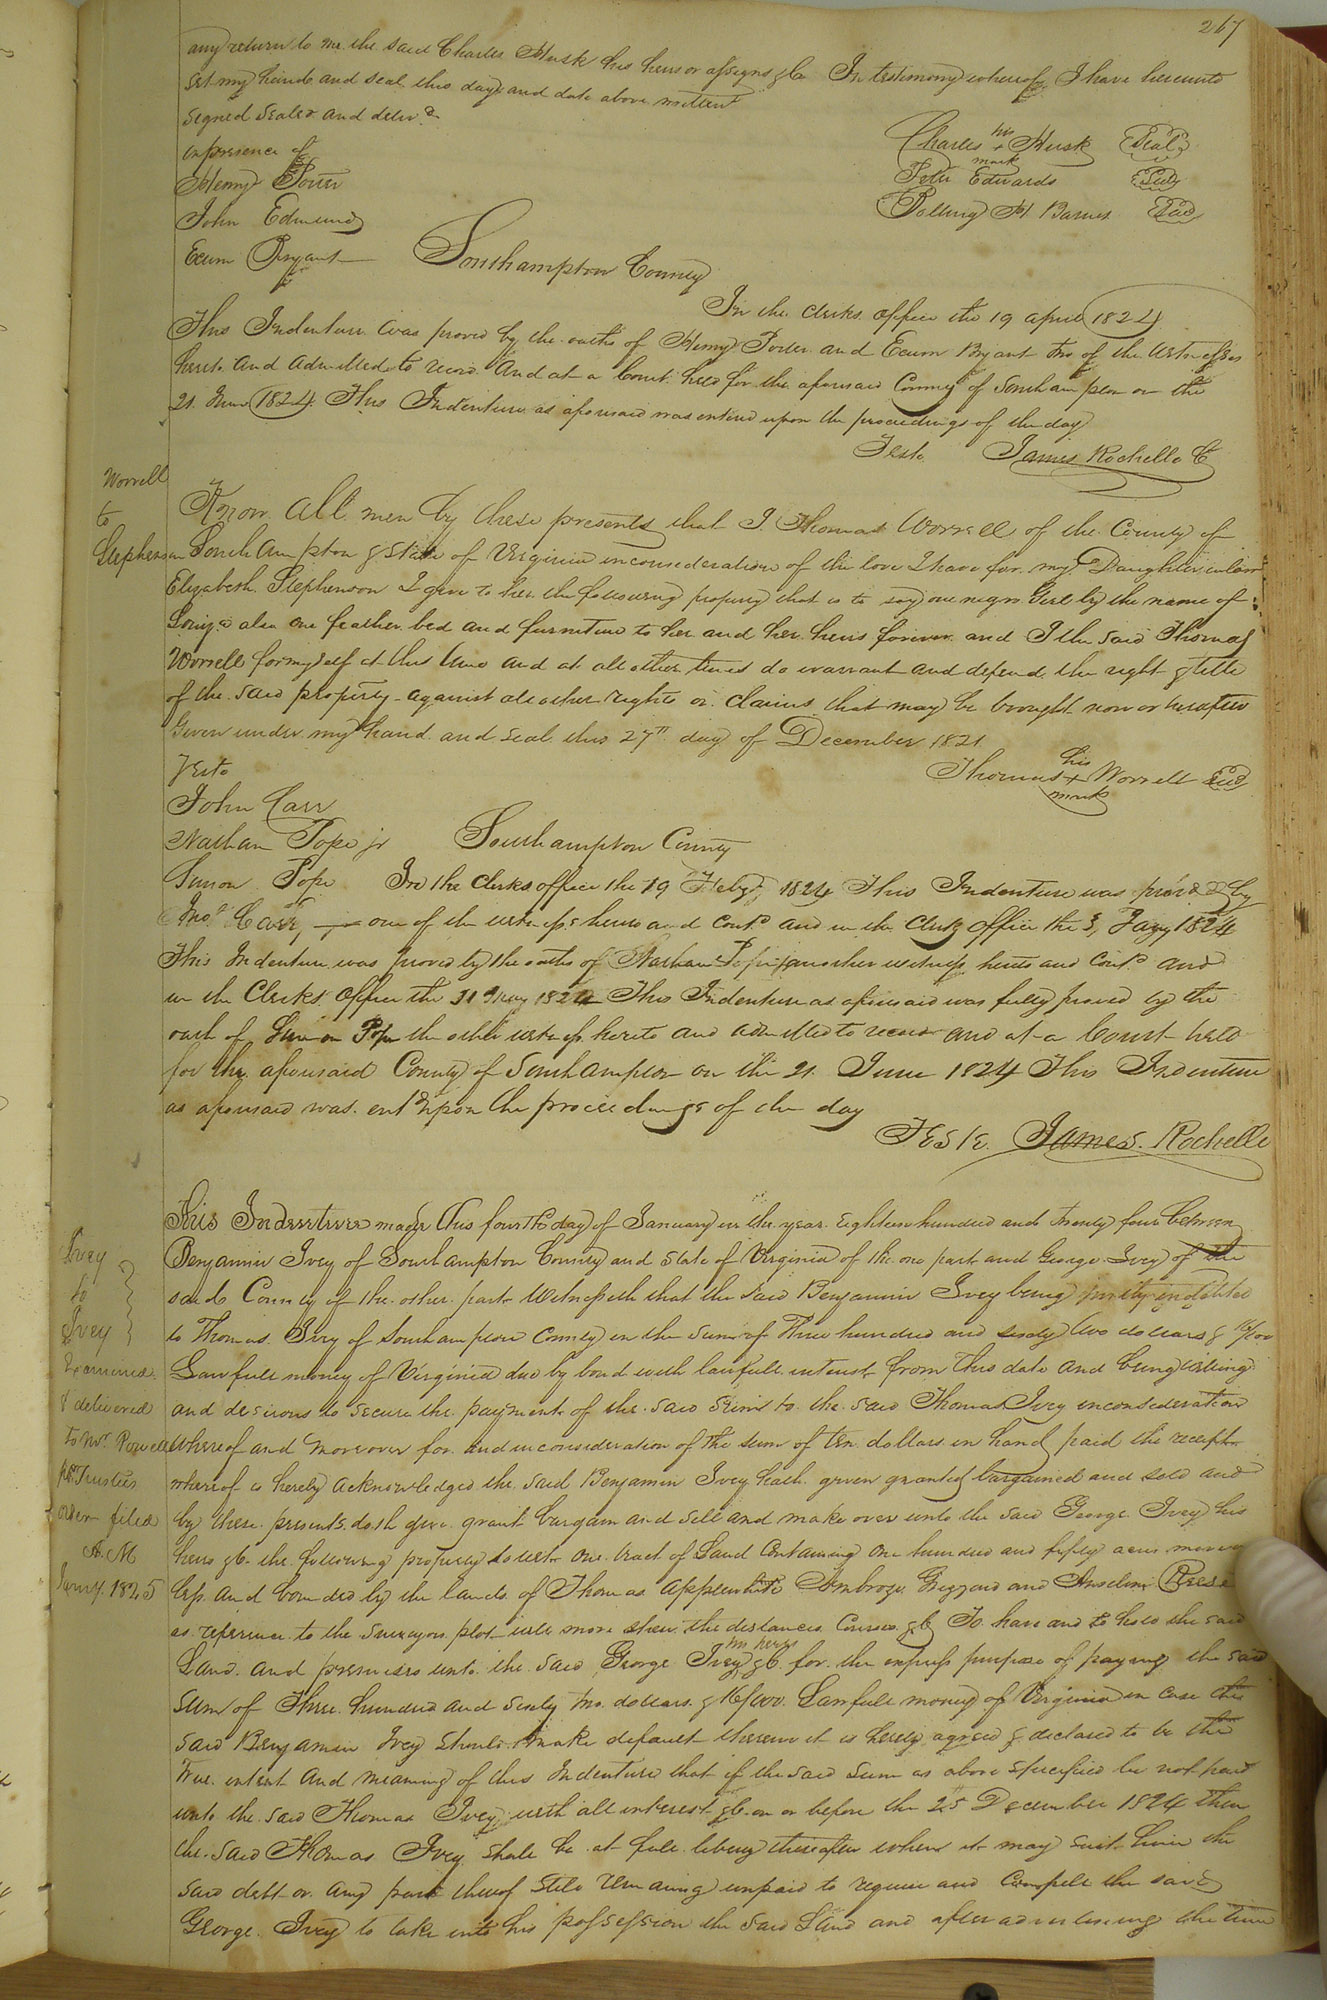 267
any return to me the said Charles Husk his heirs or assigns &c In testimony whereof I have hereunto
set my hand and seal this day and date above written
signed sealed and delivd
in presence of
Charles his + mark Husk Seal
Henry Porter
Peter Edwards Seal
John Edmunds
Bolling H Barnes Seal
Exum Bryant
Southampton County
In the Clerks office the 19 april 1824
This Indenture was proved by the oaths of Henry Porter and Exum Bryant two of the witnesses
hereto and admitted to record And at a Court held for the aforesaid County of Southampton on the
21 June 1824 This Indenture as aforesaid was entered upon the proceedings of the day
Teste James Rochelle C
Worrell
to
Stephenson
Know all men by these presents that I Thomas Worrell of the County of
Southampton & State of Virginia in consideration of the love I have for my Daughter in law
Elizabeth Stephenson I give to her the following property that is to say one negro Girl by the name of
also one feather bed and furniture to her and her heirs forever and I the said Thomas
Worrell for myself at this time and at all other times do warrant and defend the right & title
of the said property against all other rights or claims that may be brought now or hereafter
Given under my hand and seal this 27th day of December 1821
Teste
Thomas his + mark Worrell Seal
John Carr
Nathan Pope jr Southampton County
Simon Pope In the Clerks office the 19 Feby 1824 This Indenture was provd by
Jno Carr one of the witnesses hereto and Contd and in the Clerks Office the 3, Jany 1824
This Indenture was proved by the oaths of Nathan Pope jr another witness hereto and Contd and
in the Clerks Office the 31 May 1824 This Indenture as aforesaid was fully proved by the
oath of Simon Pope the other witness hereto and admitted to record and at a Court held
for the aforesaid County of Southampton on the 21 June 1824 This Indenture
as aforesaid was entd upon the proceedings of the day
Teste James Rochelle
Ivey
to
Ivey
Examined
& delivered
to Mr Powell
pr Trustees
order filed
A. M
Jany 1825
This Indenture made this fourth day of January in the year eighteen hundred and twenty four between
Benjamin Ivey of Southampton County and State of Virginia of the one part and George Ivey of the
said County of the other part Witnesseth that the said Benjamin Ivey being justly indebted
to Thomas Ivey of Southampton County in the sum of Three hundred and sixty two dollars & 16/100
Lawfull money of Virginia due by bond with lawfull interest from this date and being willing
and desirous to secure the payment of the said sum to the said Thomas Ivey in consideration
whereof and moreover for and in consideration of the sum of ten dollars in hand paid the receipt
whereof is hereby acknowledged the said Benjamin Ivey hath given granted bargained and sold and
by these presents doth give grant bargain and sell and make over unto the said George Ivey his
heirs &c the following property to wit One tract of Land Containing one hundred and fifty acres more or
less and bounded by the lands of Thomas Applewhite Ambrose Grizzard and Anselm
as reference to the surveyors plot will more shew the distances Courses &c To have and to hold the said
Land and premises unto the said George Ivey his heirs &c for the express purpose of paying the said
sum of Three hundred and sixty two dollars & 16/100 Lawfull money of Virginia in case the
said Benjamin Ivey should make default therein it is hereby agreed & declared to be the
true intent and meaning of this Indenture that if the said sum as above specified be not paid
unto the said Thomas Ivey with all interest &c on or before the 25th December 1824 then
the said Thomas Ivey shall be at full liberty thereafter when it may suit him the
said debt or any part thereof still remaining unpaid to require and Compell the said
George Ivey to take into his possession the said Land and after advertising the time